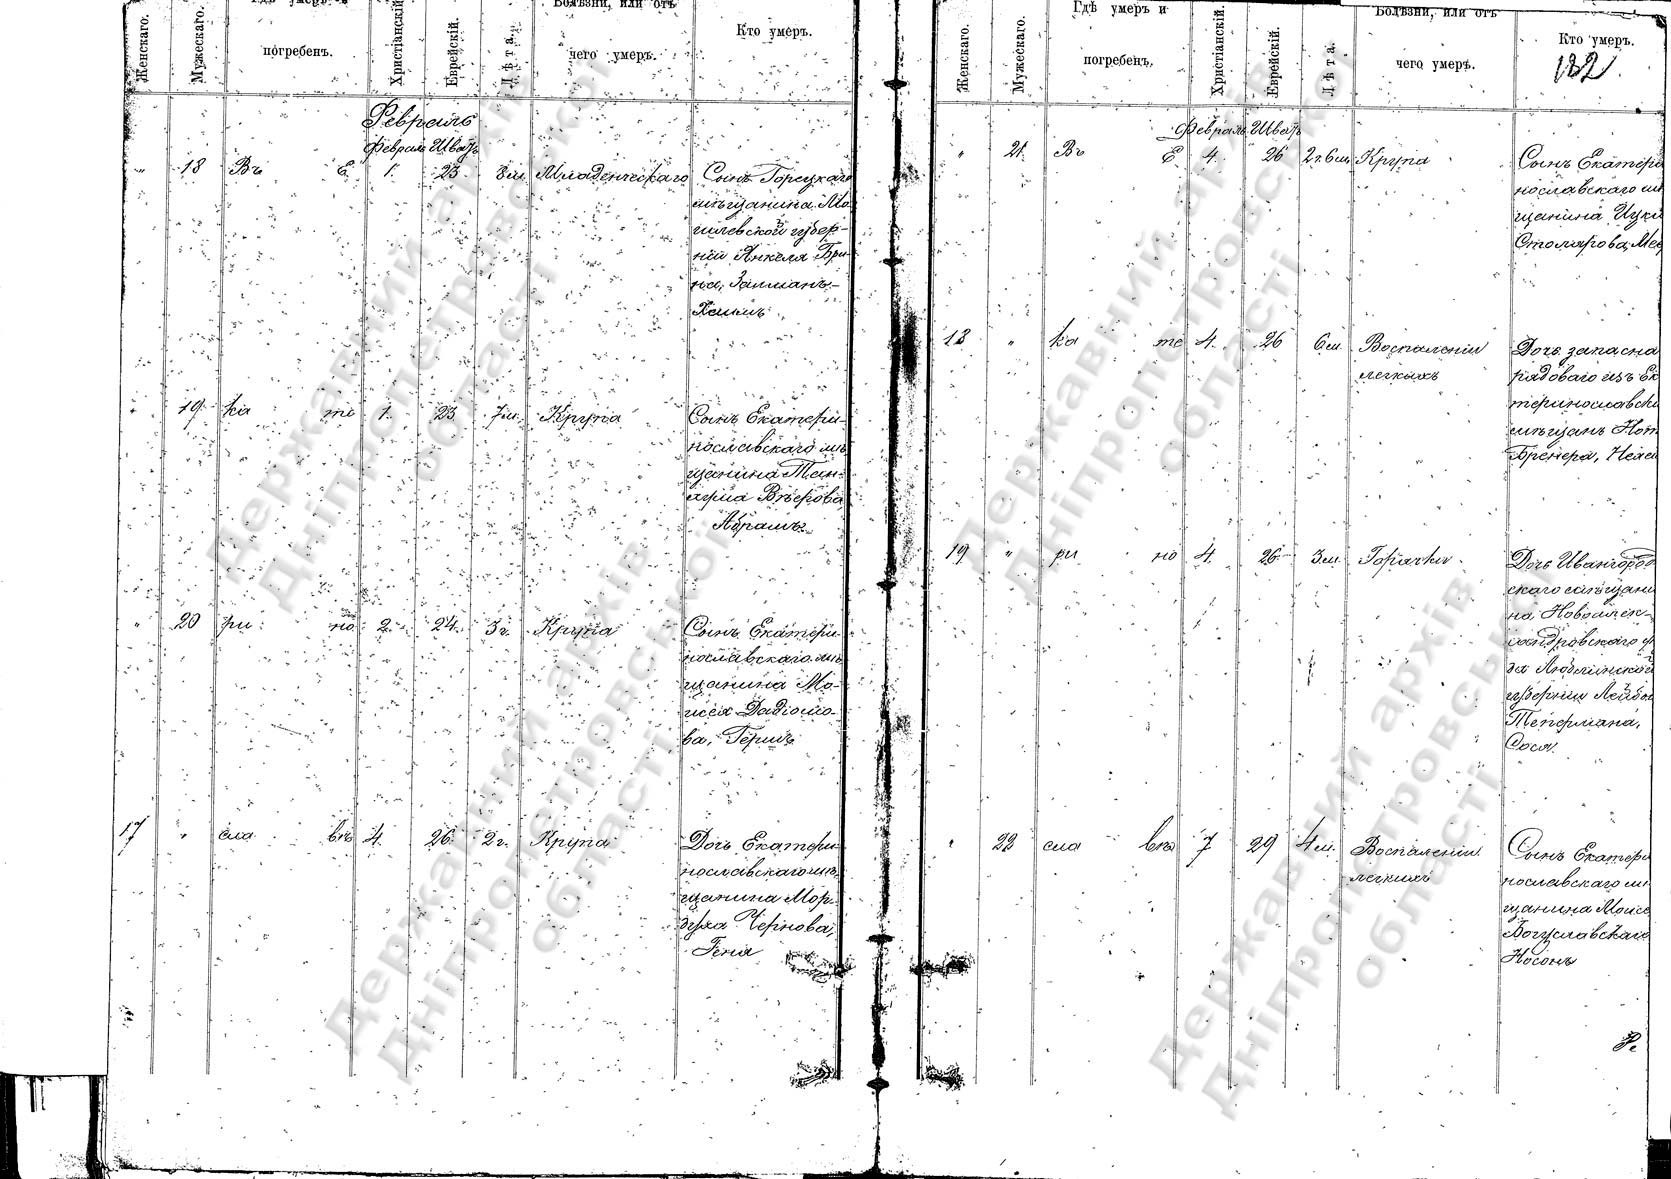 Женскаго.
Мужескаго.
погребенъ.
Христіанскій
Еврейскій.
Лѣта.
Болѣзни, или отъ
чего умеръ.
Кто умеръ.
Февраль
Февраль Шватъ
" 18 Въ Е 1. 23. 8 м. Младенческаго
Сынъ Горецкаго
мѣщанина Мо
гилевской губер-
ніи Янкеля Бри
на, Залманъ-
Хаимъ
" 19 ка те 1. 23 7 м. Крупа
Сынъ Екатери-
нославскаго мѣ
щанина Тан-
хума Вѣерова
Абрамъ
" 20 ри но 2. 24. 3 г. Крупа
Сынъ Екатери
нославскаго мѣ
щанина Мо-
исея
ва, Гершъ
17 " сла въ 4. 26. 2 г. Крупа
Дочь Екатери
нославскаго мѣ
щанина Мор-
духа Чернова,
Геня
Женскаго.
Мужескаго.
Гдѣ умеръ и
погребенъ.
Христіанскій.
Еврейскій.
Лѣта.
Болѣзни, или отъ
чего умеръ.
Кто умеръ.
132
Февраль Шватъ
" 21. Въ Е 4. 26 2 г. 6 м. Крупа
Сынъ Екатери
нославскаго мѣ
щанина Ицки
Столярова, Ме
18 " ка те 4. 26 6 м. Воспаленіи
легкихъ
Дочь запасна
рядоваго изъ Ек
атеринославски
мѣщанъ Нот
Бренера,
19 " ри но 4. 26 3 м. Горячки
Дочь Ивангород
скаго мѣщани
на Новоалек-
сандровскаго у
да Люблинской
губерніи Лейбы
Тепермана,
Сося.
" 22 сла въ 7 29 4 м. Воспаленіи
легкихъ
Сынъ Екатери
нославскаго мѣ
щанина Моисе
Богуславскаго
Носонъ
Державний архів
Дніпропетровської
області
Державний архів
Дніпропетровської
області
Державний архів
Дніпропетровської
області
Державний архів
Дніпропетровської
області